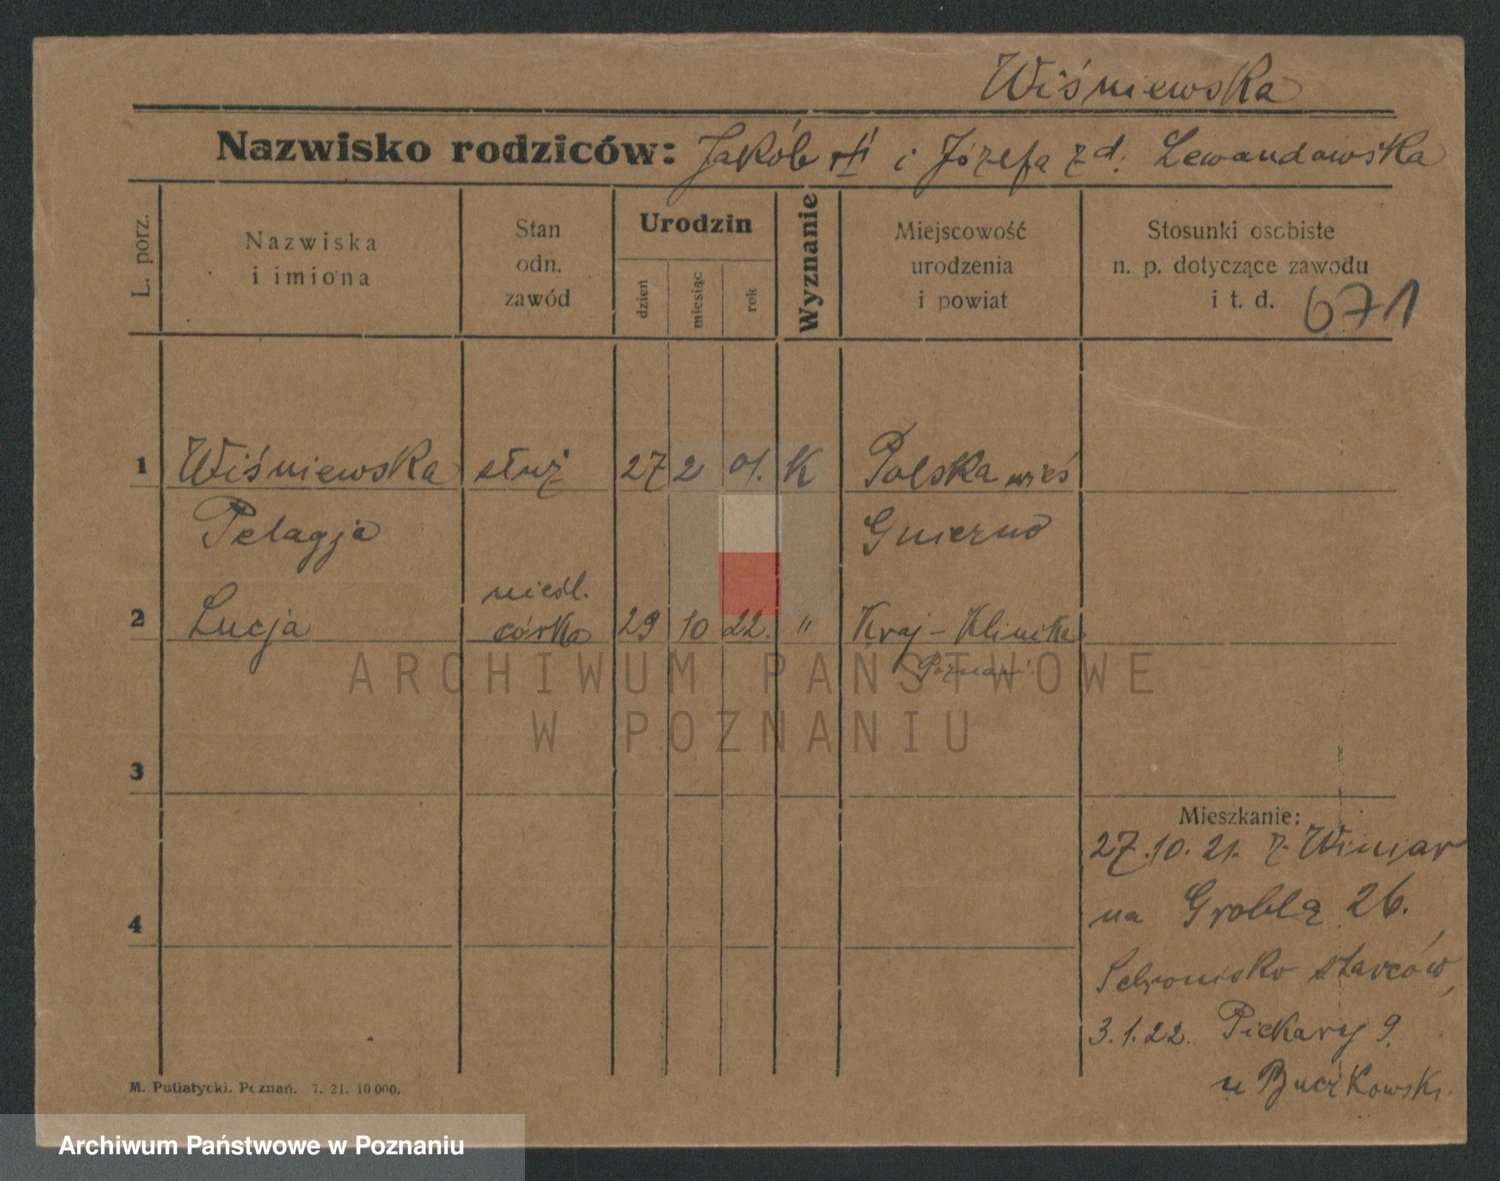 Wiśniewska
Nazwisko rodziców: Jakób i Józefa z d. Lewandowska
L. porz.
Nazwiska
i imiona
Stan
odn.
zawód
Urodzin
dzień
miesiąc
rok
Wyznanie
Miejscowość
urodzenia
i powiat
Stosunki osobiste
n. p. dotyczące zawodu
i t. d. 671
1 Wiśniewska służ 27 2 01. K Polska wieś
Pelagja Gniezno
nieśl.
2 Lucja córka 29 10 22. " Kraj-Klinika
Poznań
ARCHIWUM PAŃSTWOWE
W POZNANIU
3
Mieszkanie:
27.10.21. z Winiar
4 na Groblą 26.
Schronisko starców,
3.1.22. Piekary 9.
u Buczkowski.
M. Putiatycki. Poznań. 7. 21. 10000.
Archiwum Państwowe w Poznaniu